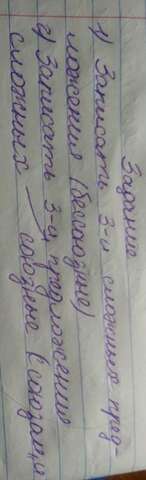 Задание
1) Записать 3-и сложные пред-
ложения (бессоюзные)
2) Записать 3-и предложения
сложных